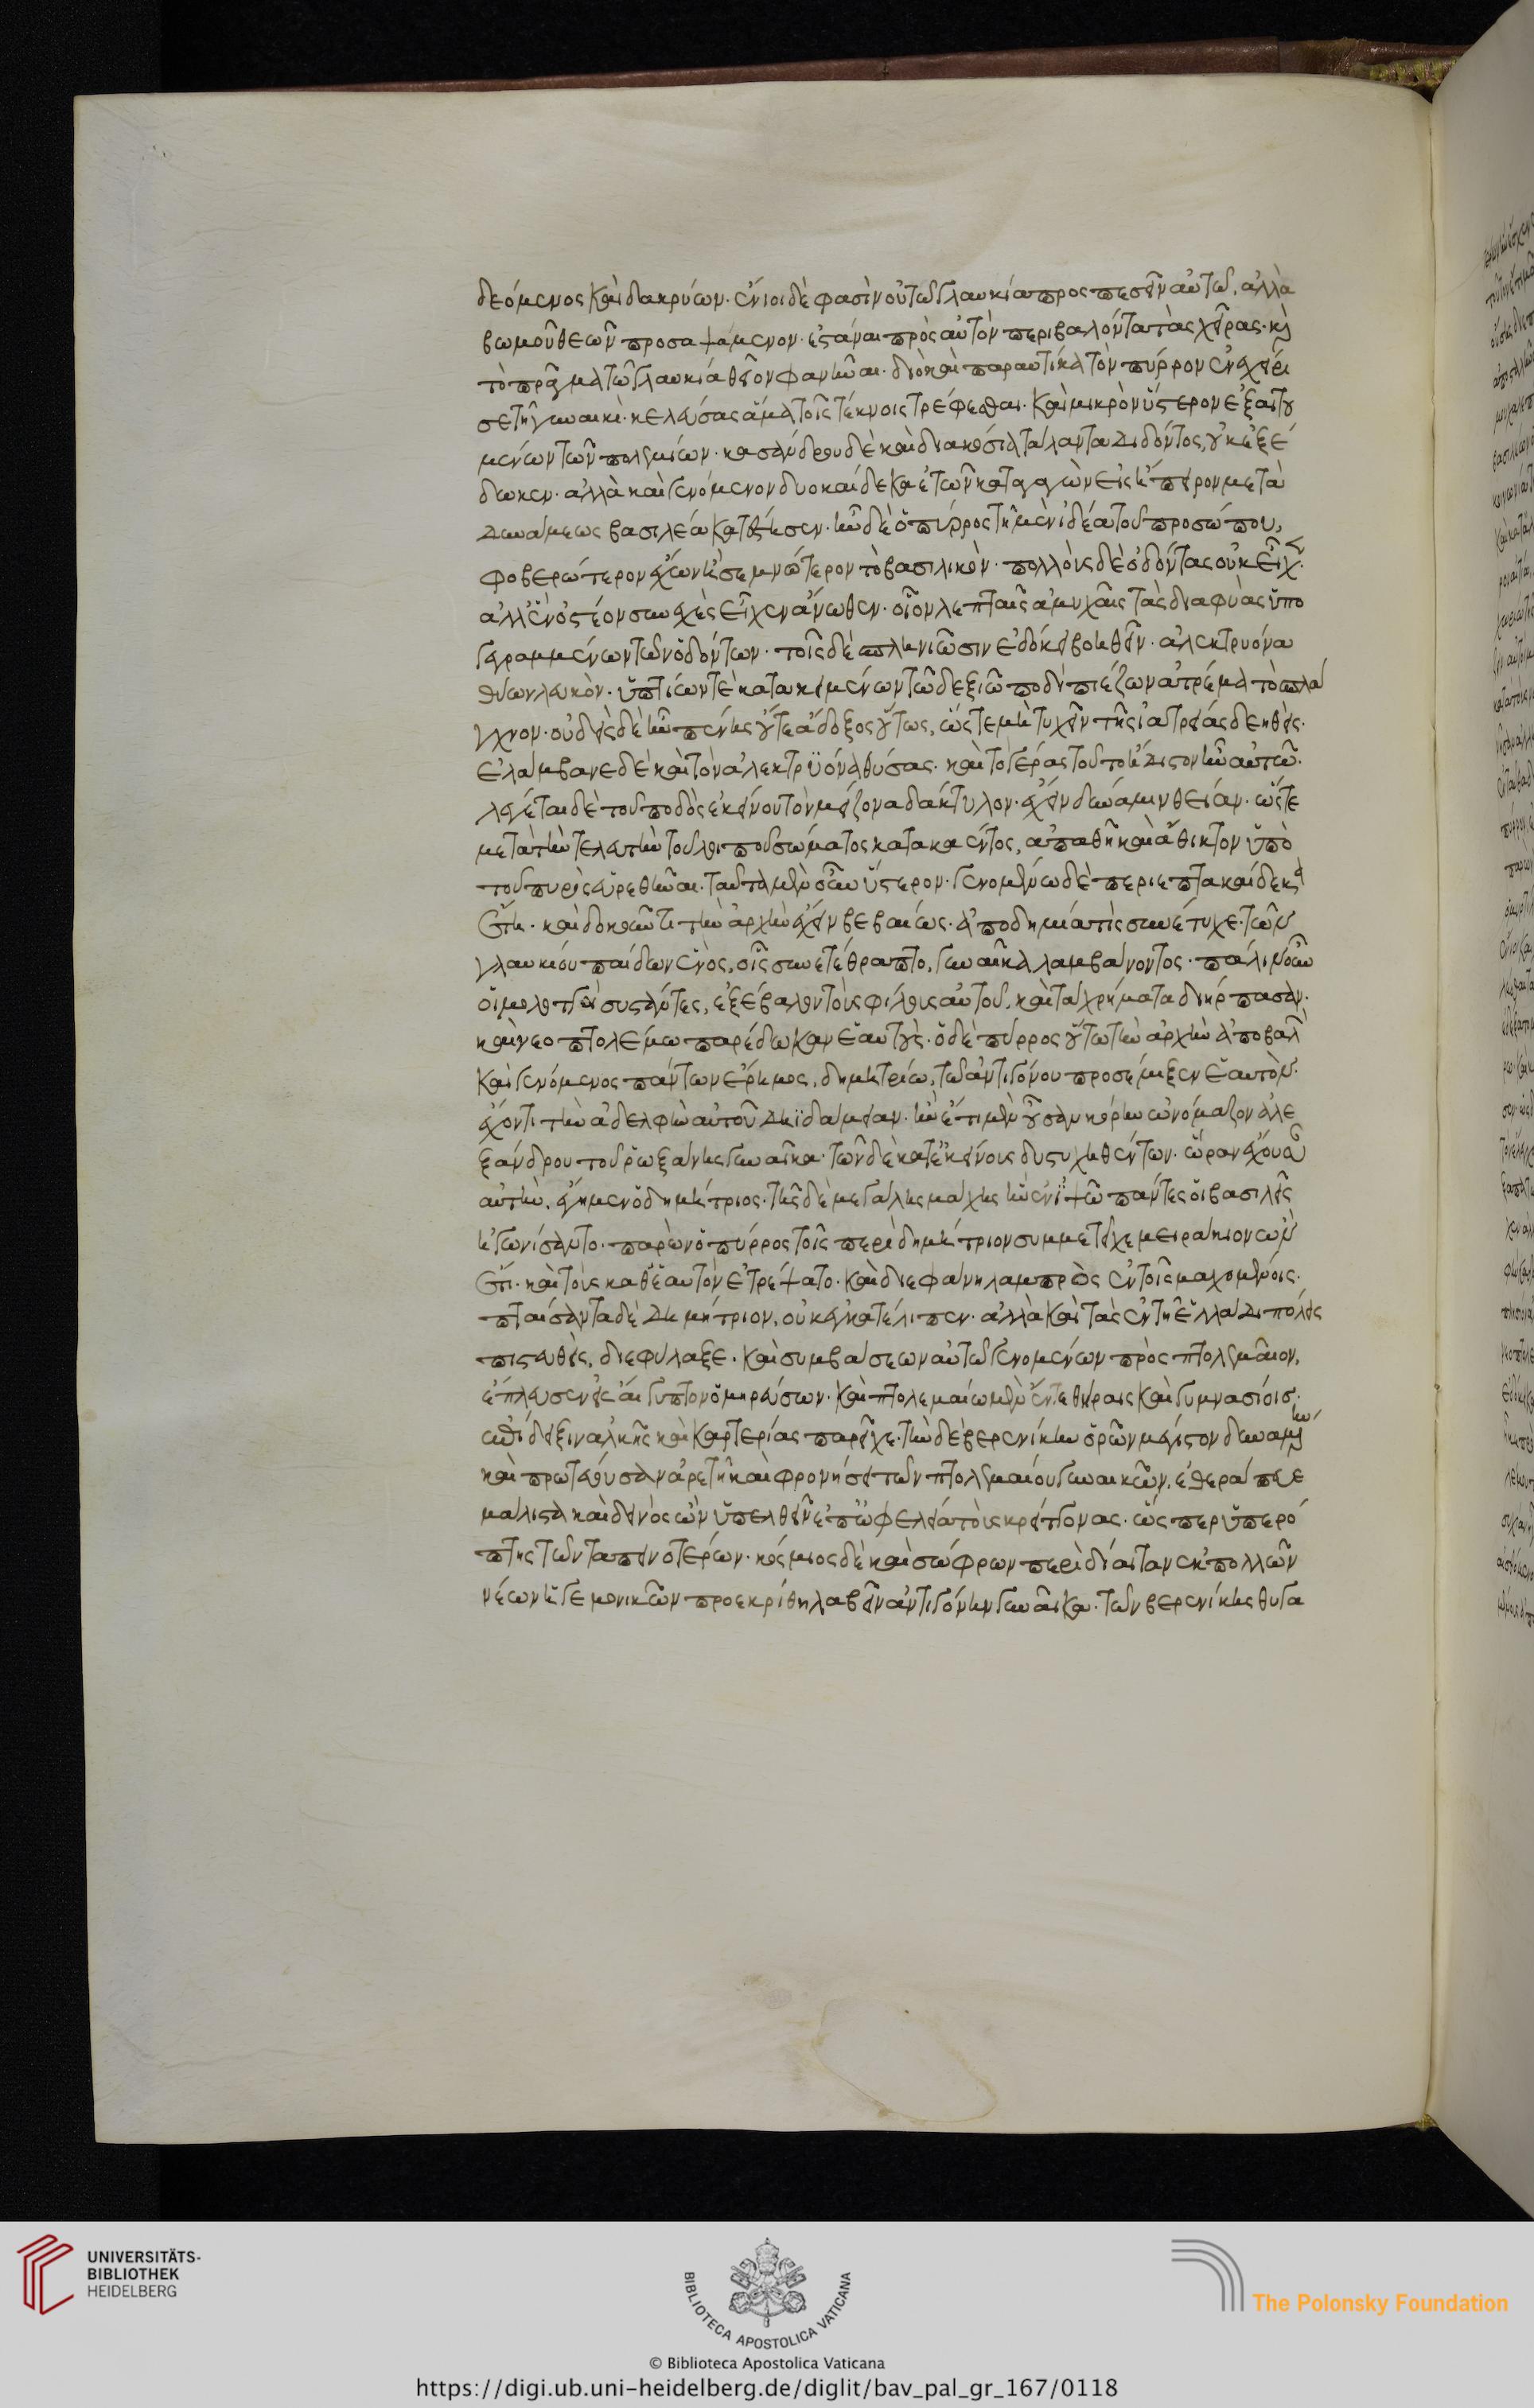 δεόμενος καὶ δακρύων· ἔνιοι δὲ φασὶν οὐ τῶ γλαυκία προσπεσεῖν αὐτῶ, ἀλλὰ
βωμοῦ θεῶν προσαψάμενον· ἑστάναι πρὸς αὐτὸν περιβαλόντα τὰς χεῖρας· κỳ
τὸ πρᾶγμα τῶ γλαυκία θεῖον φανῆναι· διὸ καὶ παραυτίκα τὸν πύρρον ἐνεχείρι
σε τῆ γυναικὶ· κελεύσας ἅμα τοῖς τέκνοις τρέφεσθαι· καὶ μικρὸν ὕστερον ἐξαιτου
μένων τῶν πολεμίων· κασάνδρου δὲ καὶ διακόσια τάλαντα διδόντος, οὐκ ἐξέ
δωκεν· ἀλλὰ καὶ γενόμενον δυοκαίδεκα ἐτῶν καταγαγὼν εἰς ἤπειρον μετὰ
δυνάμεως βασιλέα κατέστησεν· ἦν δὲ ὁ πύρρος τῆ μὲν ἰδέα τοῦ προσώπου,
φοβερώτερον ἔχων ἢ σεμνώτερον τὸ βασιλικὸν· πολλοὺς δὲ ὀδόντας οὐκ εἶχεν
ἀλλ' ἓν ὀστέον συνεχὲς εἶχεν ἄνωθεν· οἷον λεπταῖς ἀμυχαῖς τὰς διαφυὰς ὑπο
γεγραμμένων τῶν ὀδόντων· τοῖς δὲ σπληνιῶσιν ἐδόκει βοηθεῖν· ἀλεκτρυόνα
θύων λευκὸν· ὑπτίων τὲ κατακειμένων τῶ δεξιῶ ποδὶ πιέζων ἀτρέμα τὸ σπλά
γχνον· οὐδεὶς δὲ ἦν πένης οὔτε ἄδοξος οὕτως, ὥστε μὴ τυχεῖν τῆς ἰατρείας δεηθείς·
ἐλάμβανε δὲ καὶ τὸν ἀλεκτρϋόνα θύσας· καὶ τὸ γέρας τοῦτο ἥδιστον ἦν αὐτῶ·
λέγεται δὲ τοῦ ποδὸς ἐκείνου τὸν μείζονα δάκτυλον· ἔχειν δύναμιν θείαν· ὥστε
μετὰ τὴν τελευτὴν τοῦ λοιποῦ σώματος κατακαέντος, ἀπαθῆ καὶ ἄθικτον ὑπὸ
τοῦ πυρὸς εὑρεθῆναι· ταῦτα μὲν οὖν ὕστερον· γενομένω δὲ περὶ ἑπτακαίδεκα
ἔτη· καὶ δοκοῦντι τὴν ἀρχὴν ἔχειν βεβαίως· ἀποδημία τὶς συνέτυχε· τῶν
γλαυκίου παίδων ἑνὸς, οἷς συνετέθραπτο, γυναῖκα λαμβάνοντος· πάλιν οὖν
οἱ μολοττοὶ συστάντες, ἐξέβαλον τοὺς φίλους αὐτοῦ, καὶ τὰ χρήματα διήρπασαν·
καὶ νεοπτολέμω παρέδωκαν ἑαυτούς· ὁ δὲ πύρρος οὕτω τὴν ἀρχὴν ἀποβαλὼν
καὶ γενόμενος πάντων ἔρημος, δημητρίω, τῶ ἀντιγόνου προσέμιξεν ἑαυτὸν·
ἔχοντι τὴν ἀδελφὴν αὐτοῦ δηϊδάμειαν· ἣν ἔτι μὲν οὖσαν κόρην ὠνόμαζον ἀλε
ξάνδρου τοῦ ῥωξάνης γυναῖκα· τῶν δὲ κατ' ἐκείνους δυστυχηθέντων· ὥραν ἔχουσαν
αὐτὴν, ἔγημεν ὁ δημήτριος· τῆς δὲ μεγάλης μάχης ἣν ἐν ἰψῶ πάντες οἱ βασιλεῖς
ἠγωνίσαντο· παρὼν ὁ πύρρος τοῖς περὶ δημήτριον συμμετεῖχε μειράκιον ὢν
ἔτι· καὶ τοὺς καθ' ἑαυτὸν ἐτρέψατο· καὶ διεφάνη λαμπρὸς ἐν τοῖς μαχομένοις·
πταίσαντα δὲ δημήτριον, οὐκ ἐγκατέλιπεν· ἀλλὰ καὶ τὰς ἐν τῆ ἑλλάδι πόλεις
πιστευθεὶς, διεφύλαξε· καὶ συμβάσεων αὐτῶ γενομένων πρὸς πτολεμαῖον,
ἔπλευσεν εἰς αἴγυπτον ὁμηρεύσων· καὶ πτολεμαίω μὲν ἔν τε θήραις καὶ γυμνασίοις
ἐπίδειξιν ἀλκῆς καὶ καρτερίας παρεῖχε· τὴν δὲ βερενίκην ὁρῶν μέγιστον δυναμένην
καὶ πρωτεύουσαν ἀρετῆ καὶ φρονήσει τῶν πτολεμαίου γυναικῶν, ἐθεράπευε
μάλιστα καὶ δεινὸς ὢν ὑπελθεῖν ἐπ' ὠφελεία τοὺς κρείττονας· ὥσπερ ὑπερό
πτης τῶν ταπεινοτέρων· κόσμιος δὲ καὶ σώφρων περὶ δίαιταν ἐκ πολλῶν
νέων ἡγεμονικῶν προεκρίθη λαβεῖν ἀντιγόνην γυναῖκα· τῶν βερενίκης θυγα
UNIVERSITÄTS-
BIBLIOTHEK
HEIDELBERG
BIBLIOTECA APOSTOLICA VATICANA
The Polonsky Foundation
© Biblioteca Apostolica Vaticana
https://digi.ub.uni-heidelberg.de/diglit/bav_pal_gr_167/0118